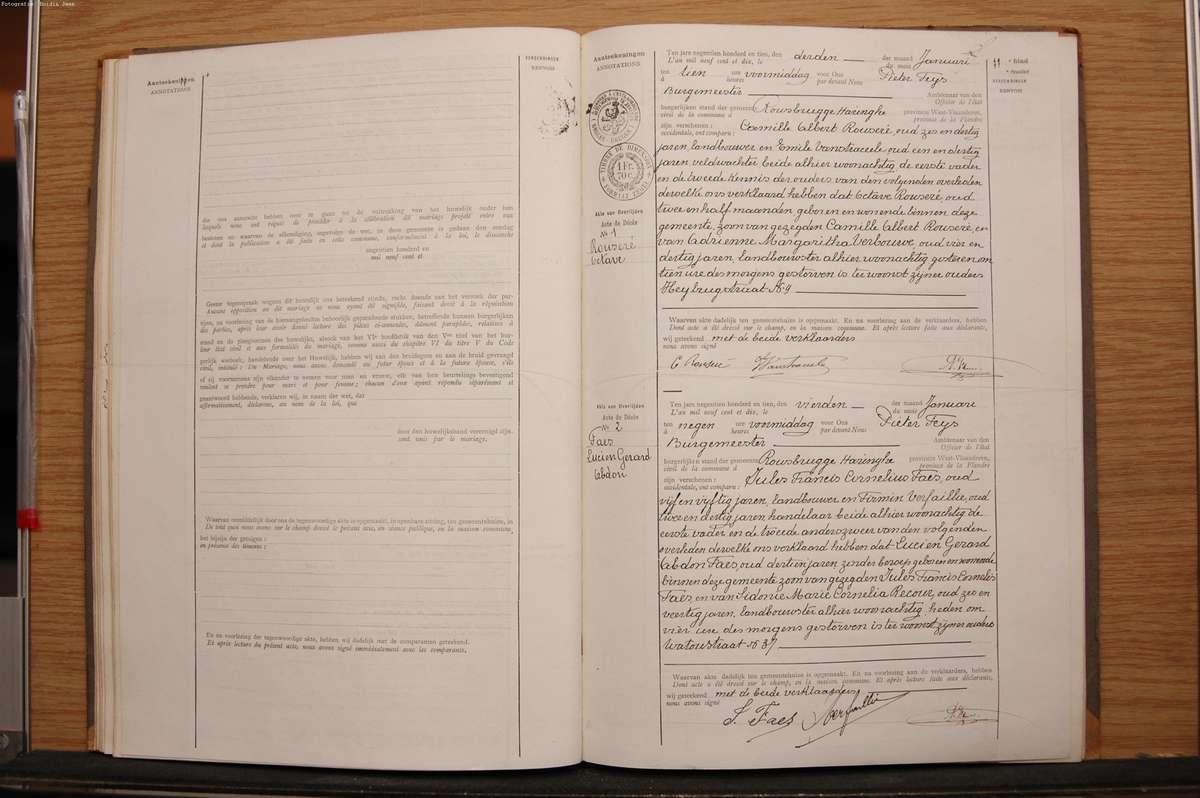 Fotografie: Boidin Jean
Aanteekeningen
ANNOTATIONS
VERZENDINGEN
RENVOIS
die ons aanzocht hebben over te gaan tot de voltrekking van het huwelijk onder hen
lesquels nous ont requis de procéder à la célébration du mariage projeté entre eux
besloten en waarvan de afkondiging, ingevolge de wet, in deze gemeente is gedaan den zondag
et dont la publication a été faite en cette commune, conformément à la loi, le dimanche
negentien honderd en
mil neuf cent et
Geene tegenspraak wegens dit huwelijk ons beteekend zijnde, recht doende aan het verzoek der par-
Aucune opposition au dit mariage ne nous ayant été signifiée, faisant droit à la réquisition
tijen, na voorlezing van de hiernagemelde behoorlijk geparafeerde stukken, betreffende hunnen burgerlijken
des parties, après leur avoir donné lecture des pièces ci-annexées, dûment paraphées, relatives à
stand en de pleegvormen des huwelijks, alsook van het VIe hoofdstuk van den Ven titel van het bur-
leur état civil et aux formalités du mariage, comme aussi du chapitre VI du titre V du Code
gerlijk wetboek, handelende over het Huwelijk, hebben wij aan den bruidegom en aan de bruid gevraagd
civil, intitulé : Du Mariage, nous avons demandé au futur époux et à la future épouse, s'ils
of zij voornemens zijn elkander te nemen voor man en vrouw, elk van hen beurtelings bevestigend
veulent se prendre pour mari et pour femme ; chacun d'eux ayant répondu séparément et
geantwoord hebbende, verklaren wij, in naam der wet, dat
affirmativement, déclarons, au nom de la loi, que
door den huwelijksband vereenigd zijn.
sont unis par le mariage.
Waarvan onmiddelijk door ons de tegenwoordige akte is opgemaakt, in openbare zitting, ten gemeentehuize, in
De tout quoi nous avons sur le champ dressé le présent acte, en séance publique, en la maison commune,
het bijzijn der getuigen :
en présence des témoins :
En na voorlezing der tegenwoordige akte, hebben wij dadelijk met de comparanten geteekend.
Et après lecture du présent acte, nous avons signé immédiatement avec les comparants.
Aanteekeningen
ANNOTATIONS
TIMBRE DE DIMENSION
1 Fr.
70 c.
Akte van Overlijden
Acte de Décès
No 1
Rouseré
Octave
Ten jare negentien honderd en tien, den derden der maand Januari
L'an mil neuf cent et dix, le du mois
ten tien ure voormiddag voor Ons Pieter Feys
à heures par devant Nous
Burgemeester Ambtenaar van den
Officier de l'état
burgerlijken stand der gemeente Rousbrugge Haringhe provincie West-Vlaanderen,
civil de la commune à province de la Flandre
zijn verschenen : Camille Albert Rouseré, oud zes en dertig
occidentale, ont comparu :
jaren, landbouwer en Emile Vanstraceele oud een en dertig
jaren, veldwachter beide alhier woonachtig de eerste vader
en de tweede kennis der ouders van den volgenden overleden
dewelke ons verklaard hebben dat Octave Rouseré, oud
twee en half maanden geboren en wonende binnen deze
gemeente, zoon van gezegden Camille Albert Rouseré en
van Adrienne Margaritha Verbouwe, oud vier en
dertig jaren, landbouwster alhier woonachtig gisteren om
tien ure des morgens gestorven is te woonst zijner ouders
Heybrugstraat No 4
Waarvan akte dadelijk ten gemeentehuize is opgemaakt. En na voorlezing aan de verklaarders, hebben
Dont acte a été dressé sur le champ, en la maison commune. Et après lecture faite aux déclarants,
wij geteekend met de beide verklaarders
nous avons signé
C Rouseré Vanstraceele
Akte van Overlijden
Acte de Décès
No 2
Faes
Lucien Gerard
Abdon
Ten jare negentien honderd en tien, den vierden der maand Januari
L'an mil neuf cent et dix, le du mois
ten negen ure voormiddag voor Ons Pieter Feys
à heures par devant Nous
Burgemeester Ambtenaar van den
Officier de l'état
burgerlijken stand der gemeente Rousbrugge Haringhe provincie West-Vlaanderen,
civil de la commune à province de la Flandre
zijn verschenen : Jules Francis Cornelius Faes, oud
occidentale, ont comparu :
vijf en vijftig jaren, landbouwer en Firmin Verfaillie, oud
twee en dertig jaren, handelaar beide alhier woonachtig de
eerste vader en de tweede aanderzweer van den volgenden
overleden dewelke ons verklaard hebben dat Lucien Gerard
Abdon Faes, oud dertien jaren, zonder beroep geboren en wonende
binnen deze gemeente zoon van gezegden Jules Francis Cornelius
Faes, en van Sidonie Marie Cornelia Recour, oud zes en
veertig jaren, landbouwster alhier woonachtig heden om
vier ure des morgens gestorven is ter woonst zijner ouders
Watoustraat No 37
Waarvan akte dadelijk ten gemeentehuize is opgemaakt. En na voorlezing aan de verklaarders, hebben
Dont acte a été dressé sur le champ, en la maison commune. Et après lecture faite aux déclarants,
wij geteekend met de beide verklaarders
nous avons signé
J. Faes Verfaillie
VERZENDINGEN
RENVOIS